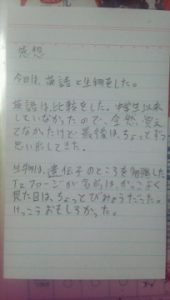 感想
今日は、英語と生物をした。
英語は、比較をした。中学生以来
していなかったので、全然、覚え
てなかったけど、最後は、ちょっとずつ
思い出してきた。
生物は、遺伝子のところを勉強した
T2ファージが名前は、かっこよく
見た目は、ちょっとびみょうだった。
けっこうおもしろかった。